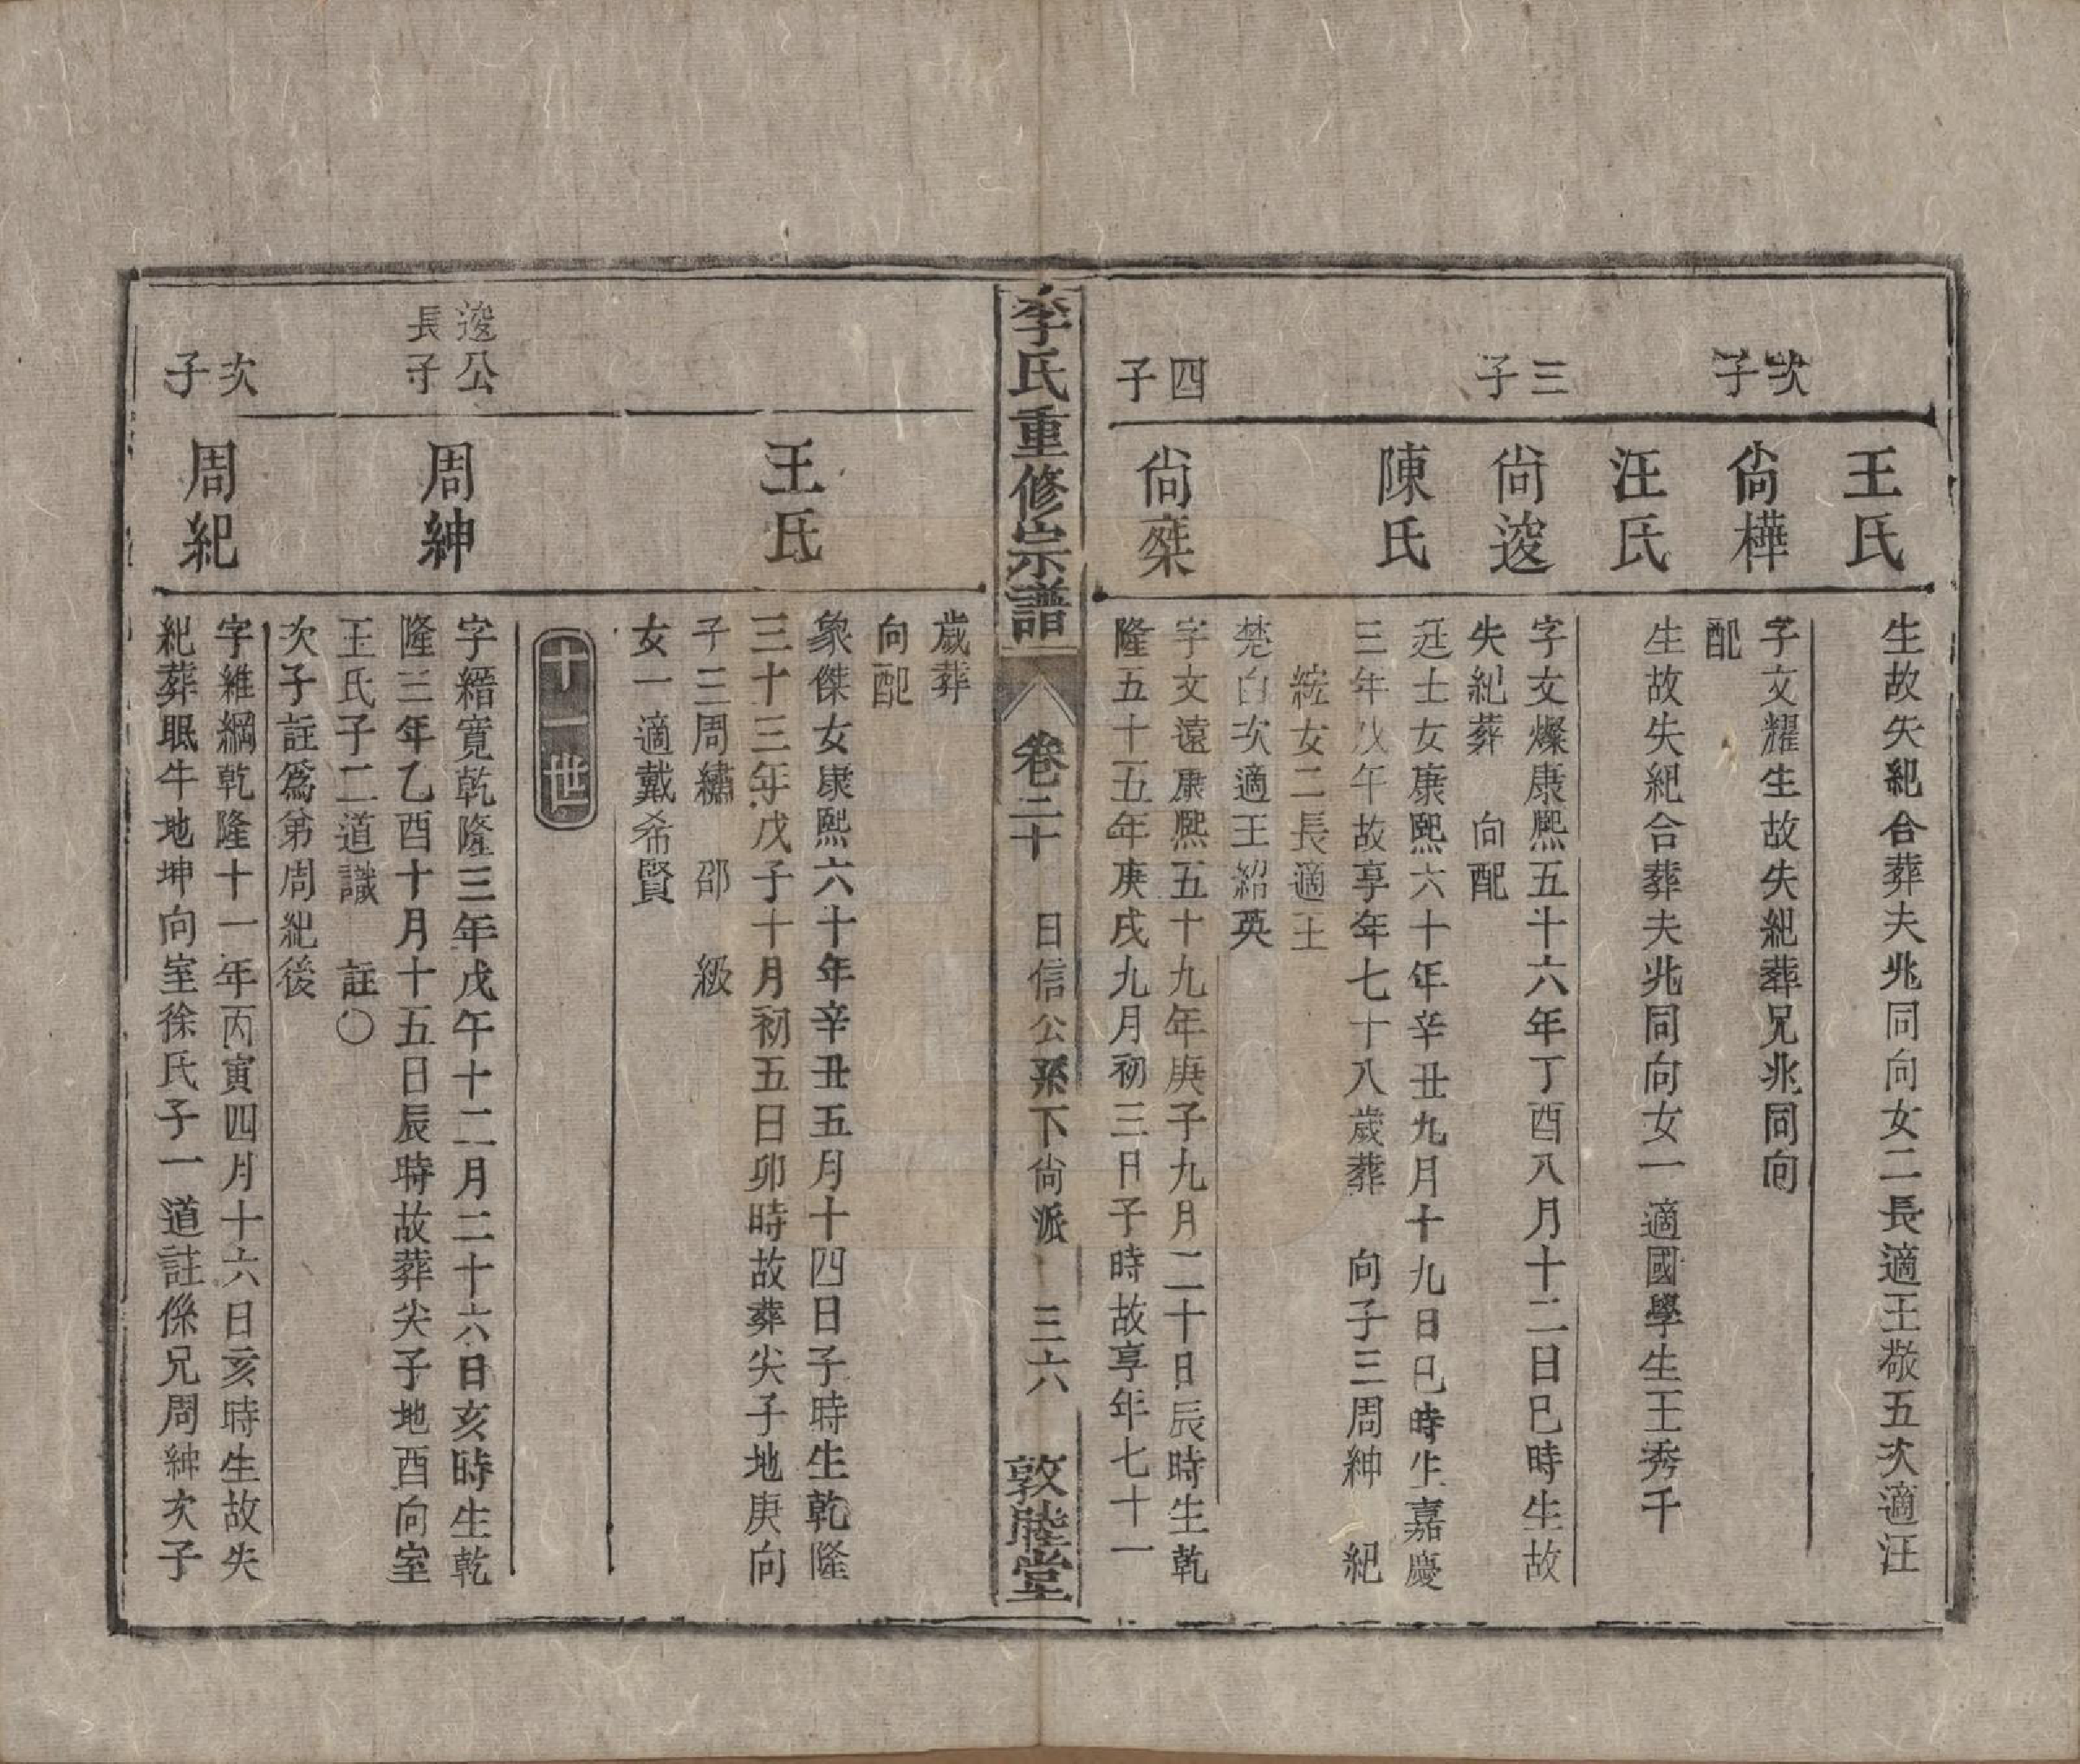 王氏
生故失紀合葬夫兆同向女二長適王敬五次適汪
次子
尙樺
字文耀生故失紀葬兄兆同向
配
汪氏
生故失紀合葬夫兆同向女一適國學生王秀千
三子
尙逡
字文燦康熙五十六年丁酉八月十二日巳時生故
失紀葬 向配
陳氏
廷士女康熙六十年辛丑九月十九日巳時生嘉慶
三年戊午故享年七十八歲葬 向子三周紳 紀
綋女二長適王
楚白次適王紹英
四子
尙桀
字文遠康熙五十九年庚子九月二十日辰時生乾
隆五十五年庚戌九月初三日子時故享年七十一
李氏重修宗譜 卷二十 日信公系下尙派 三六 敦睦堂
歲葬
向配
王氏
象傑女康熙六十年辛丑五月十四日子時生乾隆
三十三年戊子十月初五日卯時故葬尖子地庚向
子三周繡 邵 級
女一適戴希賢
十一世
逡公
長子
周紳
字縉寬乾隆三年戊午十二月二十六日亥時生乾
隆三年乙酉十月十五日辰時故葬尖子地酉向室
王氏子二道識 註〇
次子註爲弟周紀後
次子
周紀
字維綱乾隆十一年丙寅四月十六日亥時生故失
紀葬眠牛地坤向室徐氏子一道註係兄周紳次子